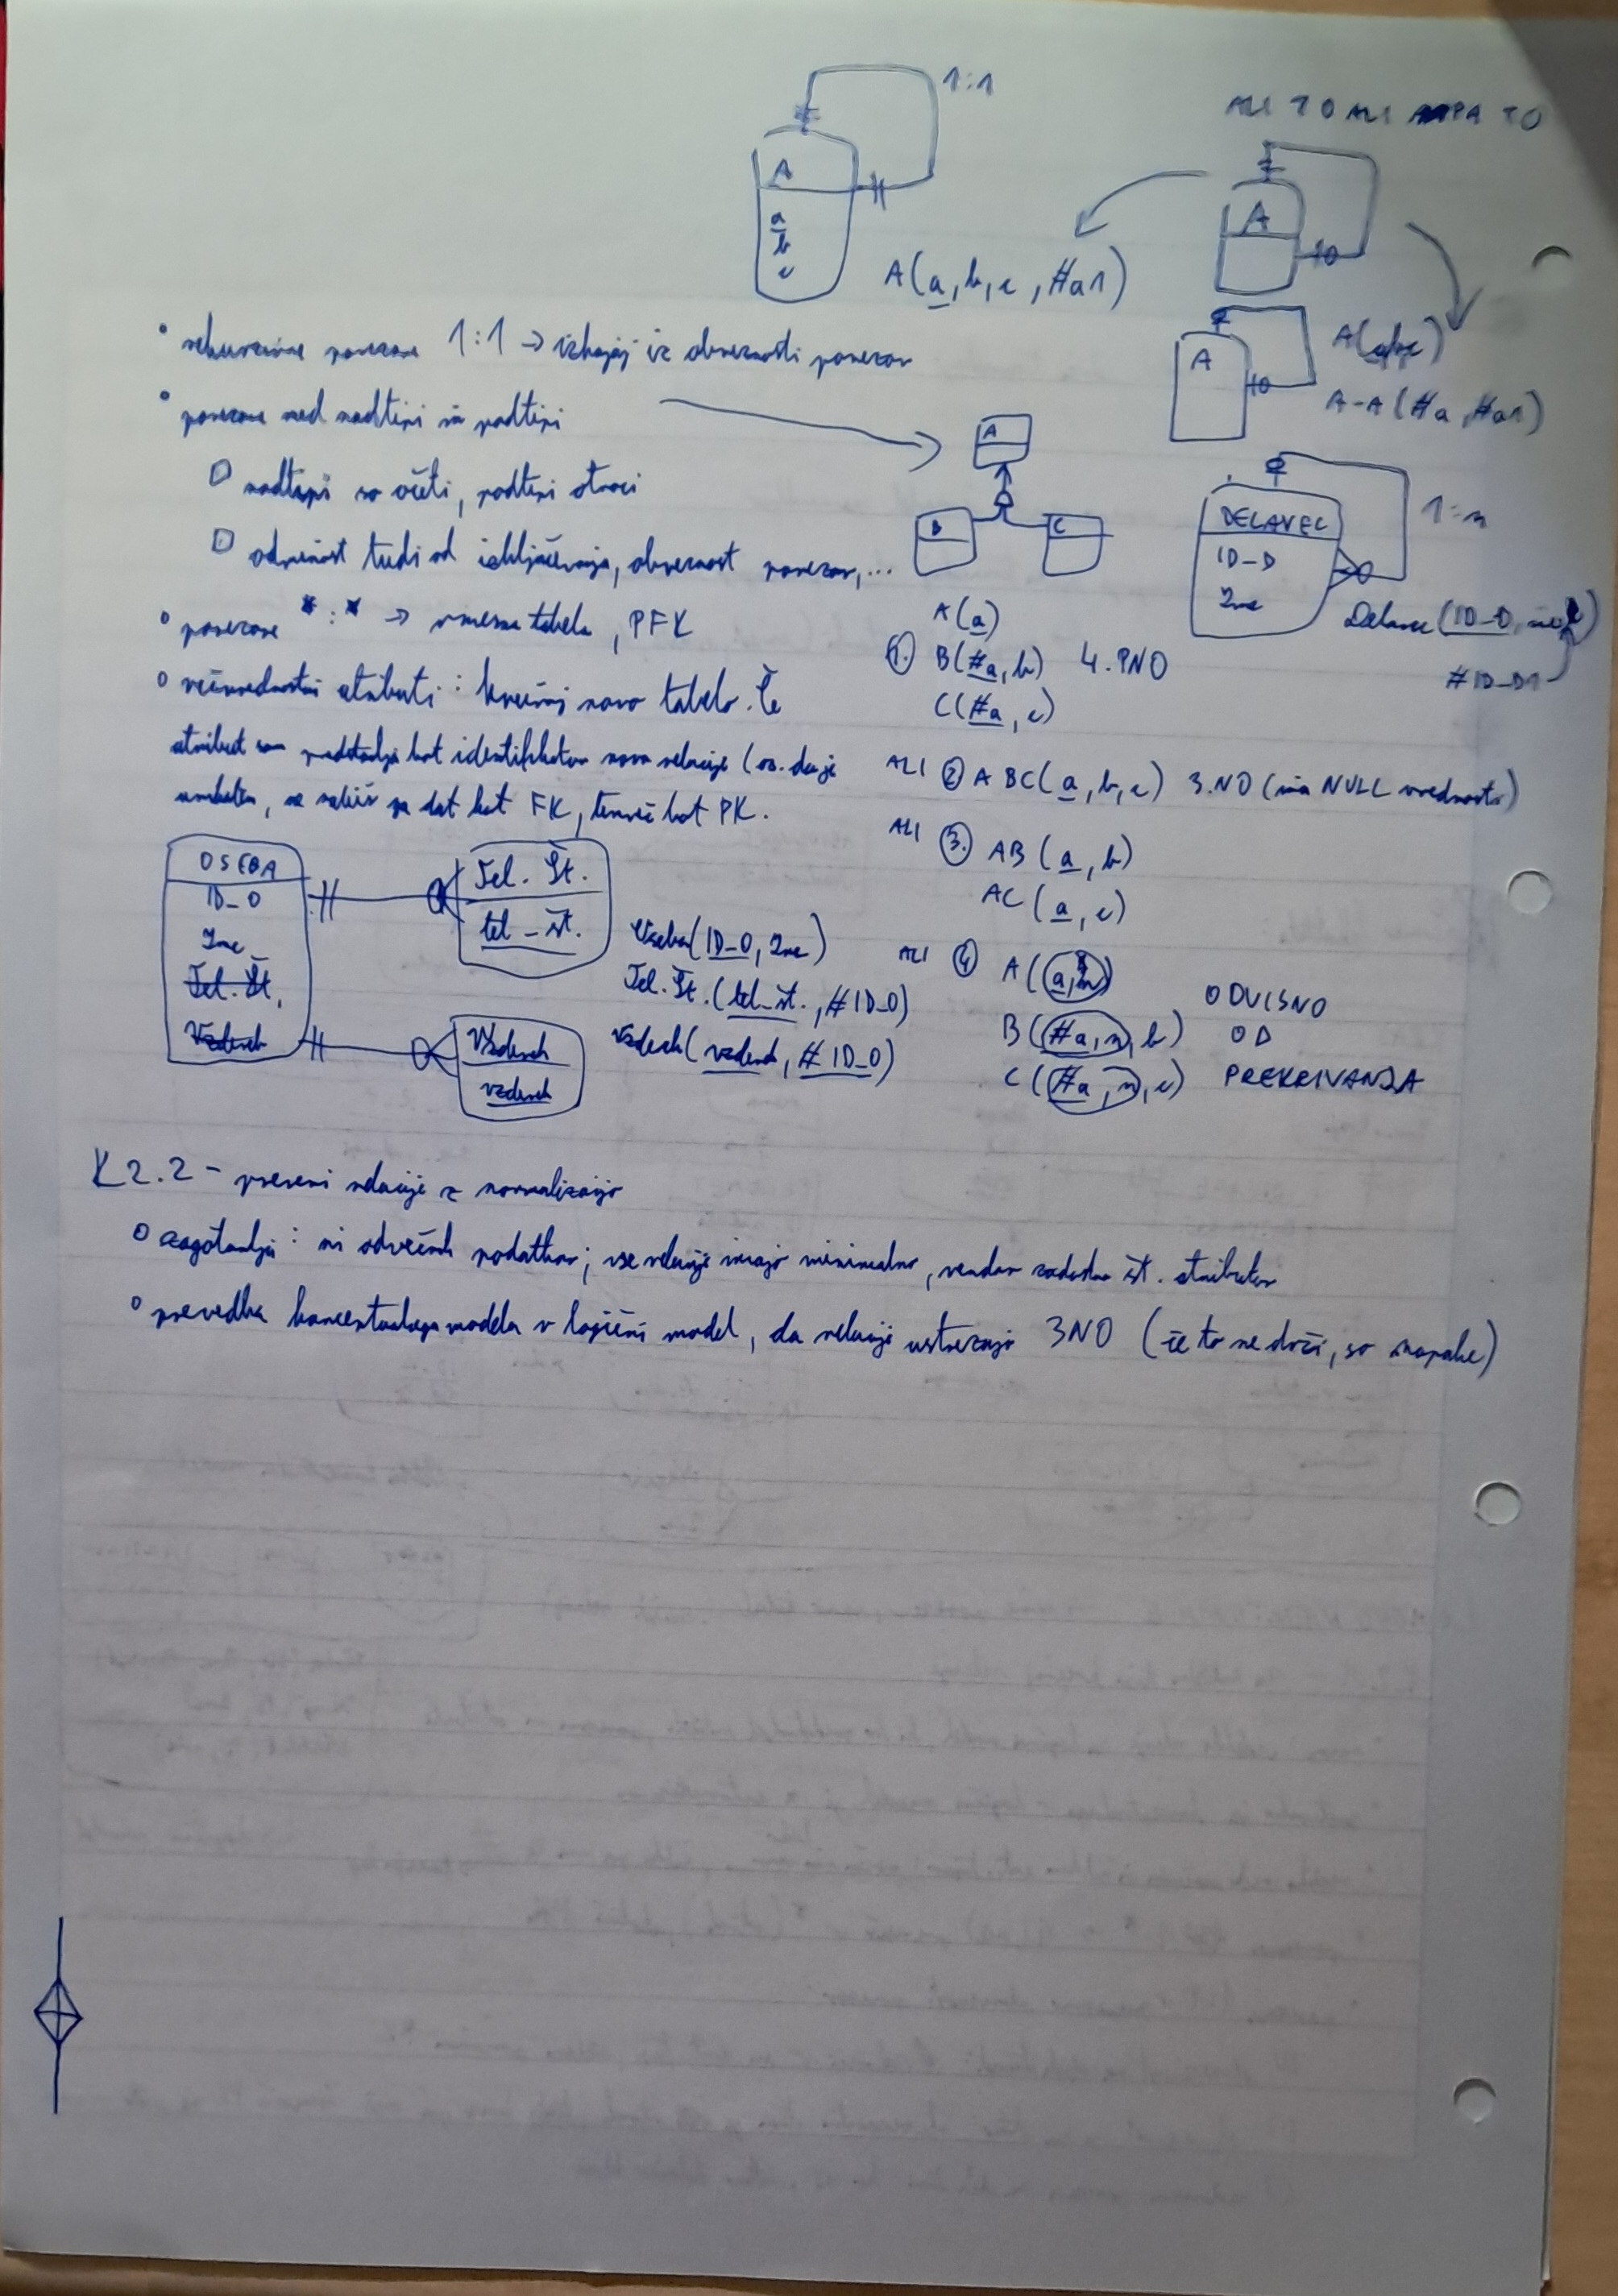 1:1
ALI TO ALI PA TO
A
a
b
c
A(a, b, c, #a1)
A
A
A(a,b,c)
A-A (#a, #a1)
• rekurzivne povezave 1:1 → izhajaj iz obveznosti povezav
• povezave med nadtipi in podtipi
nadtipi so očeti, podtipi otroci
odvisnost tudi od izključevanja, obveznost povezav,...
A
B
C
DELAVEC
ID_D
Ime
1:n
Delavec (ID_D, ime,
#ID_D1
• povezave *:* → vmesna tabela, PFK
• večvrednostni atributi: kreiraj novo tabelo. Če
atribut predstavlja kot identifikator nove relacije (oz. daje
), se rešiš ga dat kot FK, temveč kot PK.
A(a)
1. B(#a, b) 4. PNO
C(#a, c)
ALI 2 ABC(a, b, c) 3.NO (ima NULL vrednosti)
ALI 3. AB (a, b)
AC (a, c)
ALI 4 A(a, n)
B(#a, n, b)
C(#a, n, c)
ODVISNO
OD
PREKRIVANJA
OSEBA
ID_O
Ime
Tel. Št.
Vzdevek
Tel. Št.
tel_št.
Vzdevek
vzdevek
Oseba(ID_O, Ime)
Tel. Št. (tel_št., #ID_O)
Vzdevek(vzdevek, #ID_O)
K2.2 - preveri relacije z normalizacijo
• zagotavlja: ni odvečnih podatkov; vse relacije imajo minimalno, vendar zadostno št. atributov
• prevedba konceptualnega modela v logični model, da relacije ustrezajo 3NO (če to ne drži, so napake)